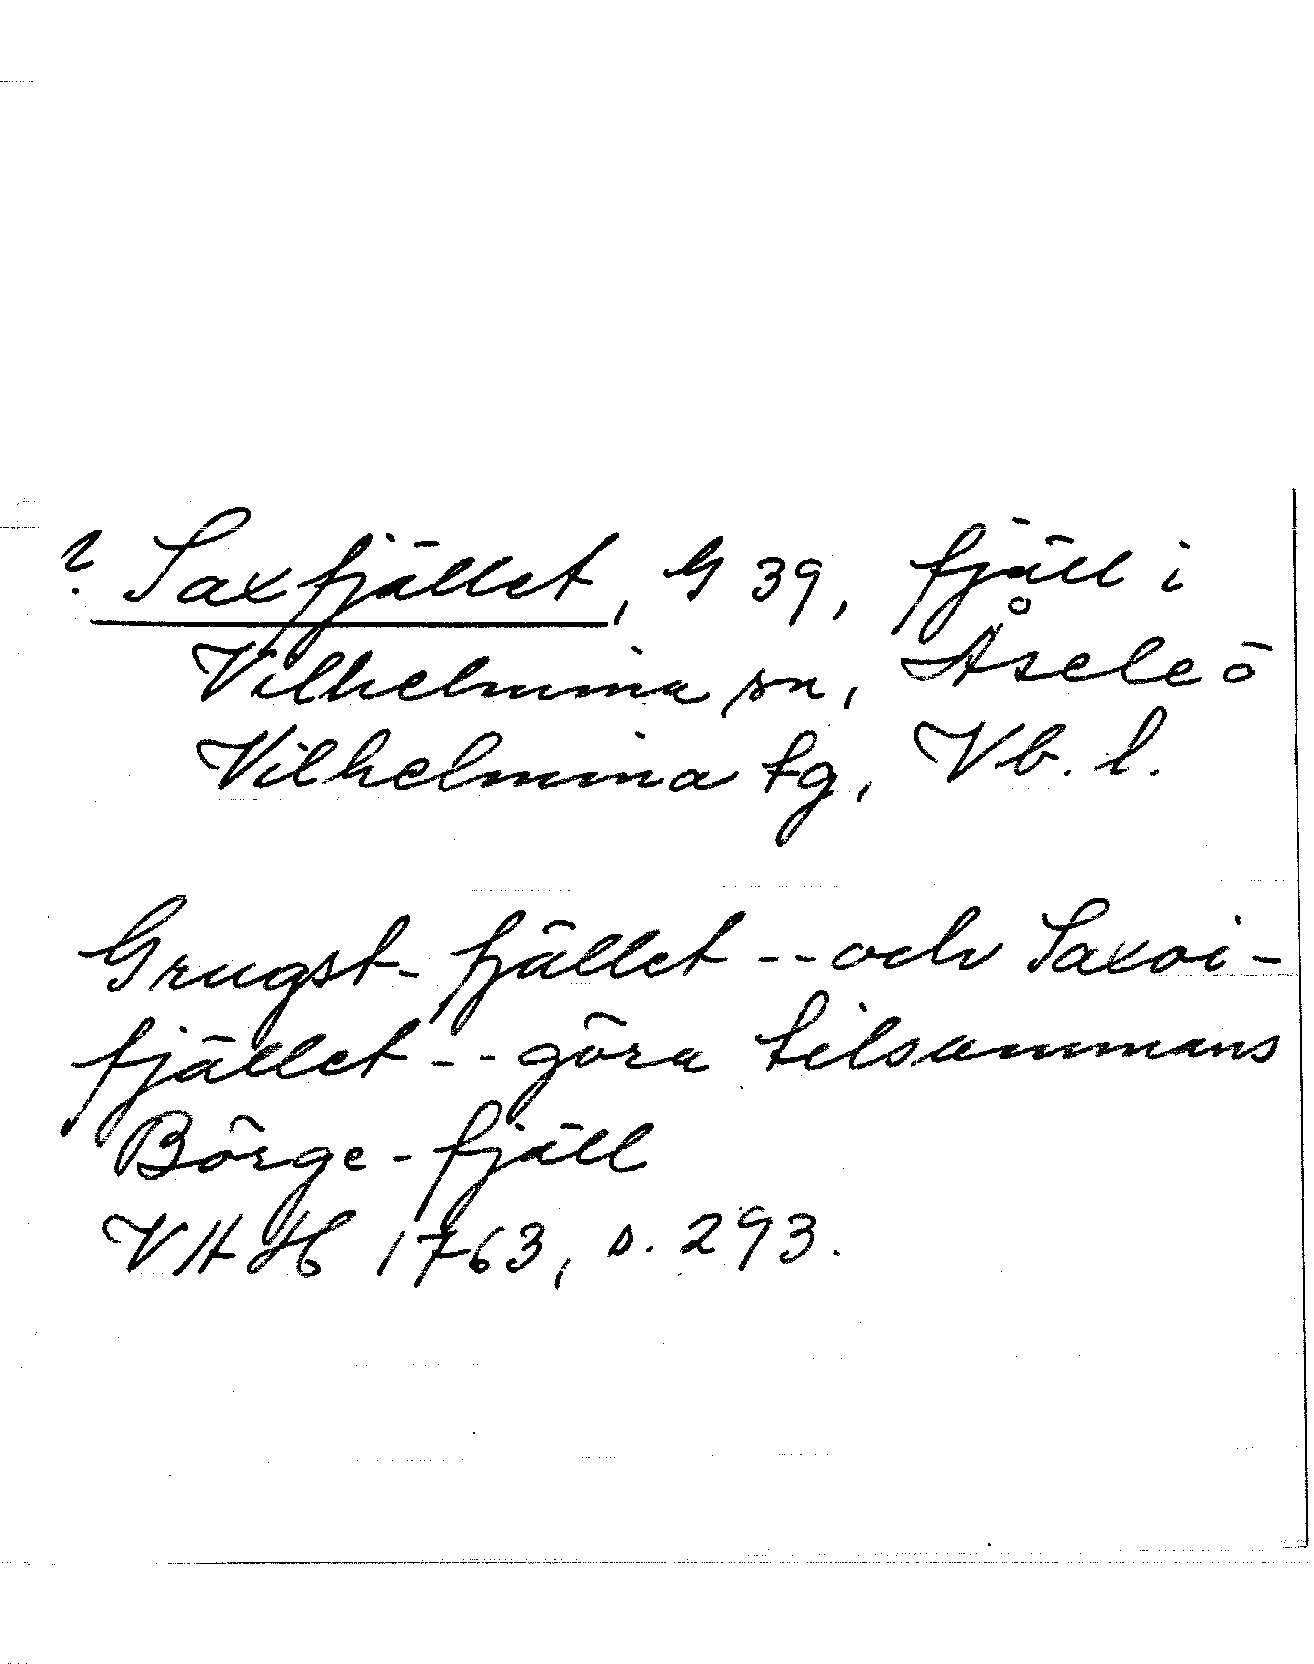 ? Saxfjället, G 39, fjäll i
Vilhelmina sn, Åsele ö
Vilhelmina tg, Vb. l.
Grugst-fjället -- och Saxoi-
fjället -- göra tilsammans
Börge-fjäll
VHH 1763, s. 293.